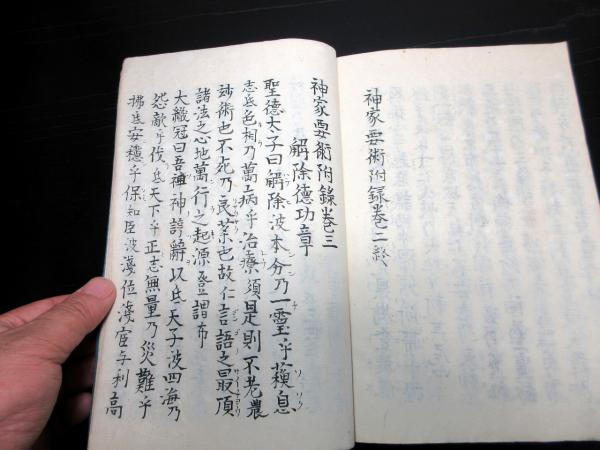 神家要術附録巻二終
神家要術附録巻三
解除德功章
聖德太子曰解除波本分乃一霊乎蘓息
志氐色相乃萬病乎治療須是則不老農
妙術也不死乃良薬也故仁言語之最頂
諸法之心地萬行之起源登謂布
大織冠曰吾祖神諄辭以氐天子波四海乃
怨敵乎伐氐天下乎正志無量乃災難乎
拂比安穏乎保知臣波凌位凌官与利高